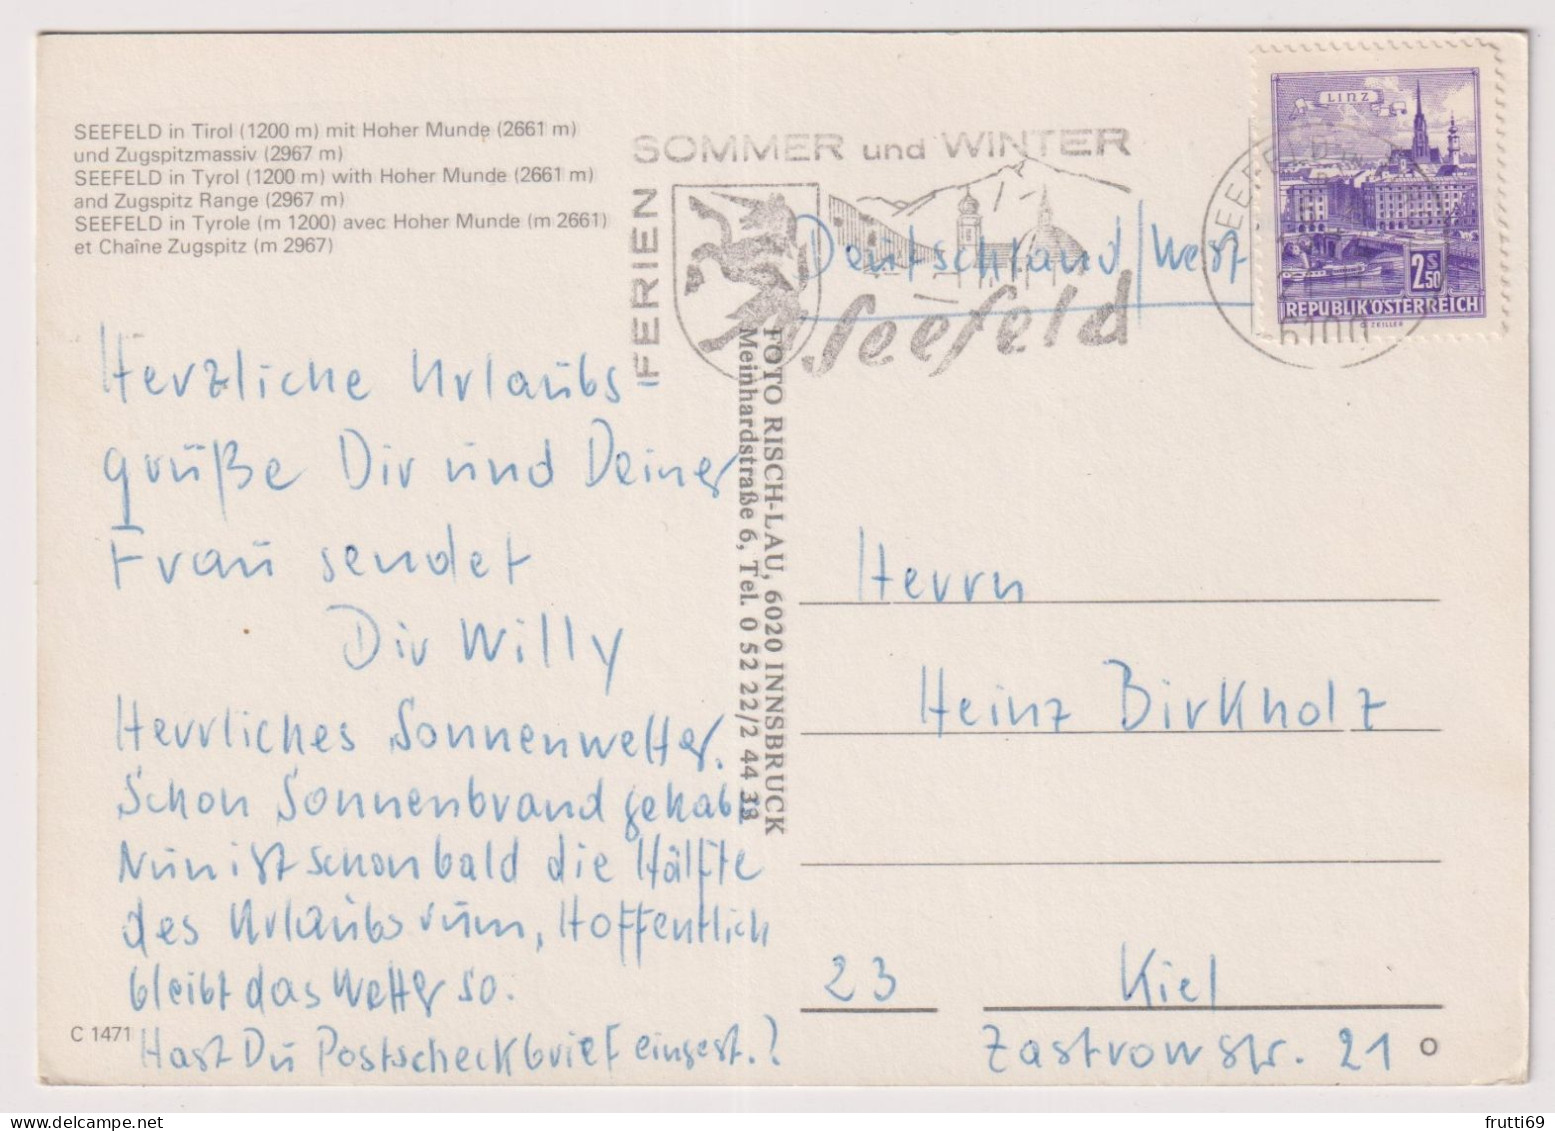 SEEFELD in Tirol (1200 m) mit Hoher Munde (2661 m)
und Zugspitzmassiv (2967 m)
SEEFELD in Tyrol (1200 m) with Hoher Munde (2661 m)
and Zugspitz Range (2967 m)
SEEFELD in Tyrole (m 1200) avec Hoher Munde (m 2661)
et Chaîne Zugspitz (m 2967)
FERIEN
SOMMER und WINTER
Seefeld
SEEFELD
6100
LINZ
2S50
REPUBLIK ÖSTERREICH
G. ZEILLER
Deutschland/West
Herzliche Urlaubs-
grüße Dir und Deiner
Frau sendet
Dir Willy
Herrliches Sonnenwetter.
Schon Sonnenbrand gehabt
Nun ist schon bald die Hälfte
des Urlaubs rum, Hoffentlich
bleibt das Wetter so.
Hast Du Postscheckbrief eingest.?
C 1471
FOTO RISCH-LAU, 6020 INNSBRUCK
Meinhardstraße 6, Tel. 0 52 22/2 44 38
Herrn
Heinz Birkholz
23 Kiel
Zastrowstr. 21
O
frutti69